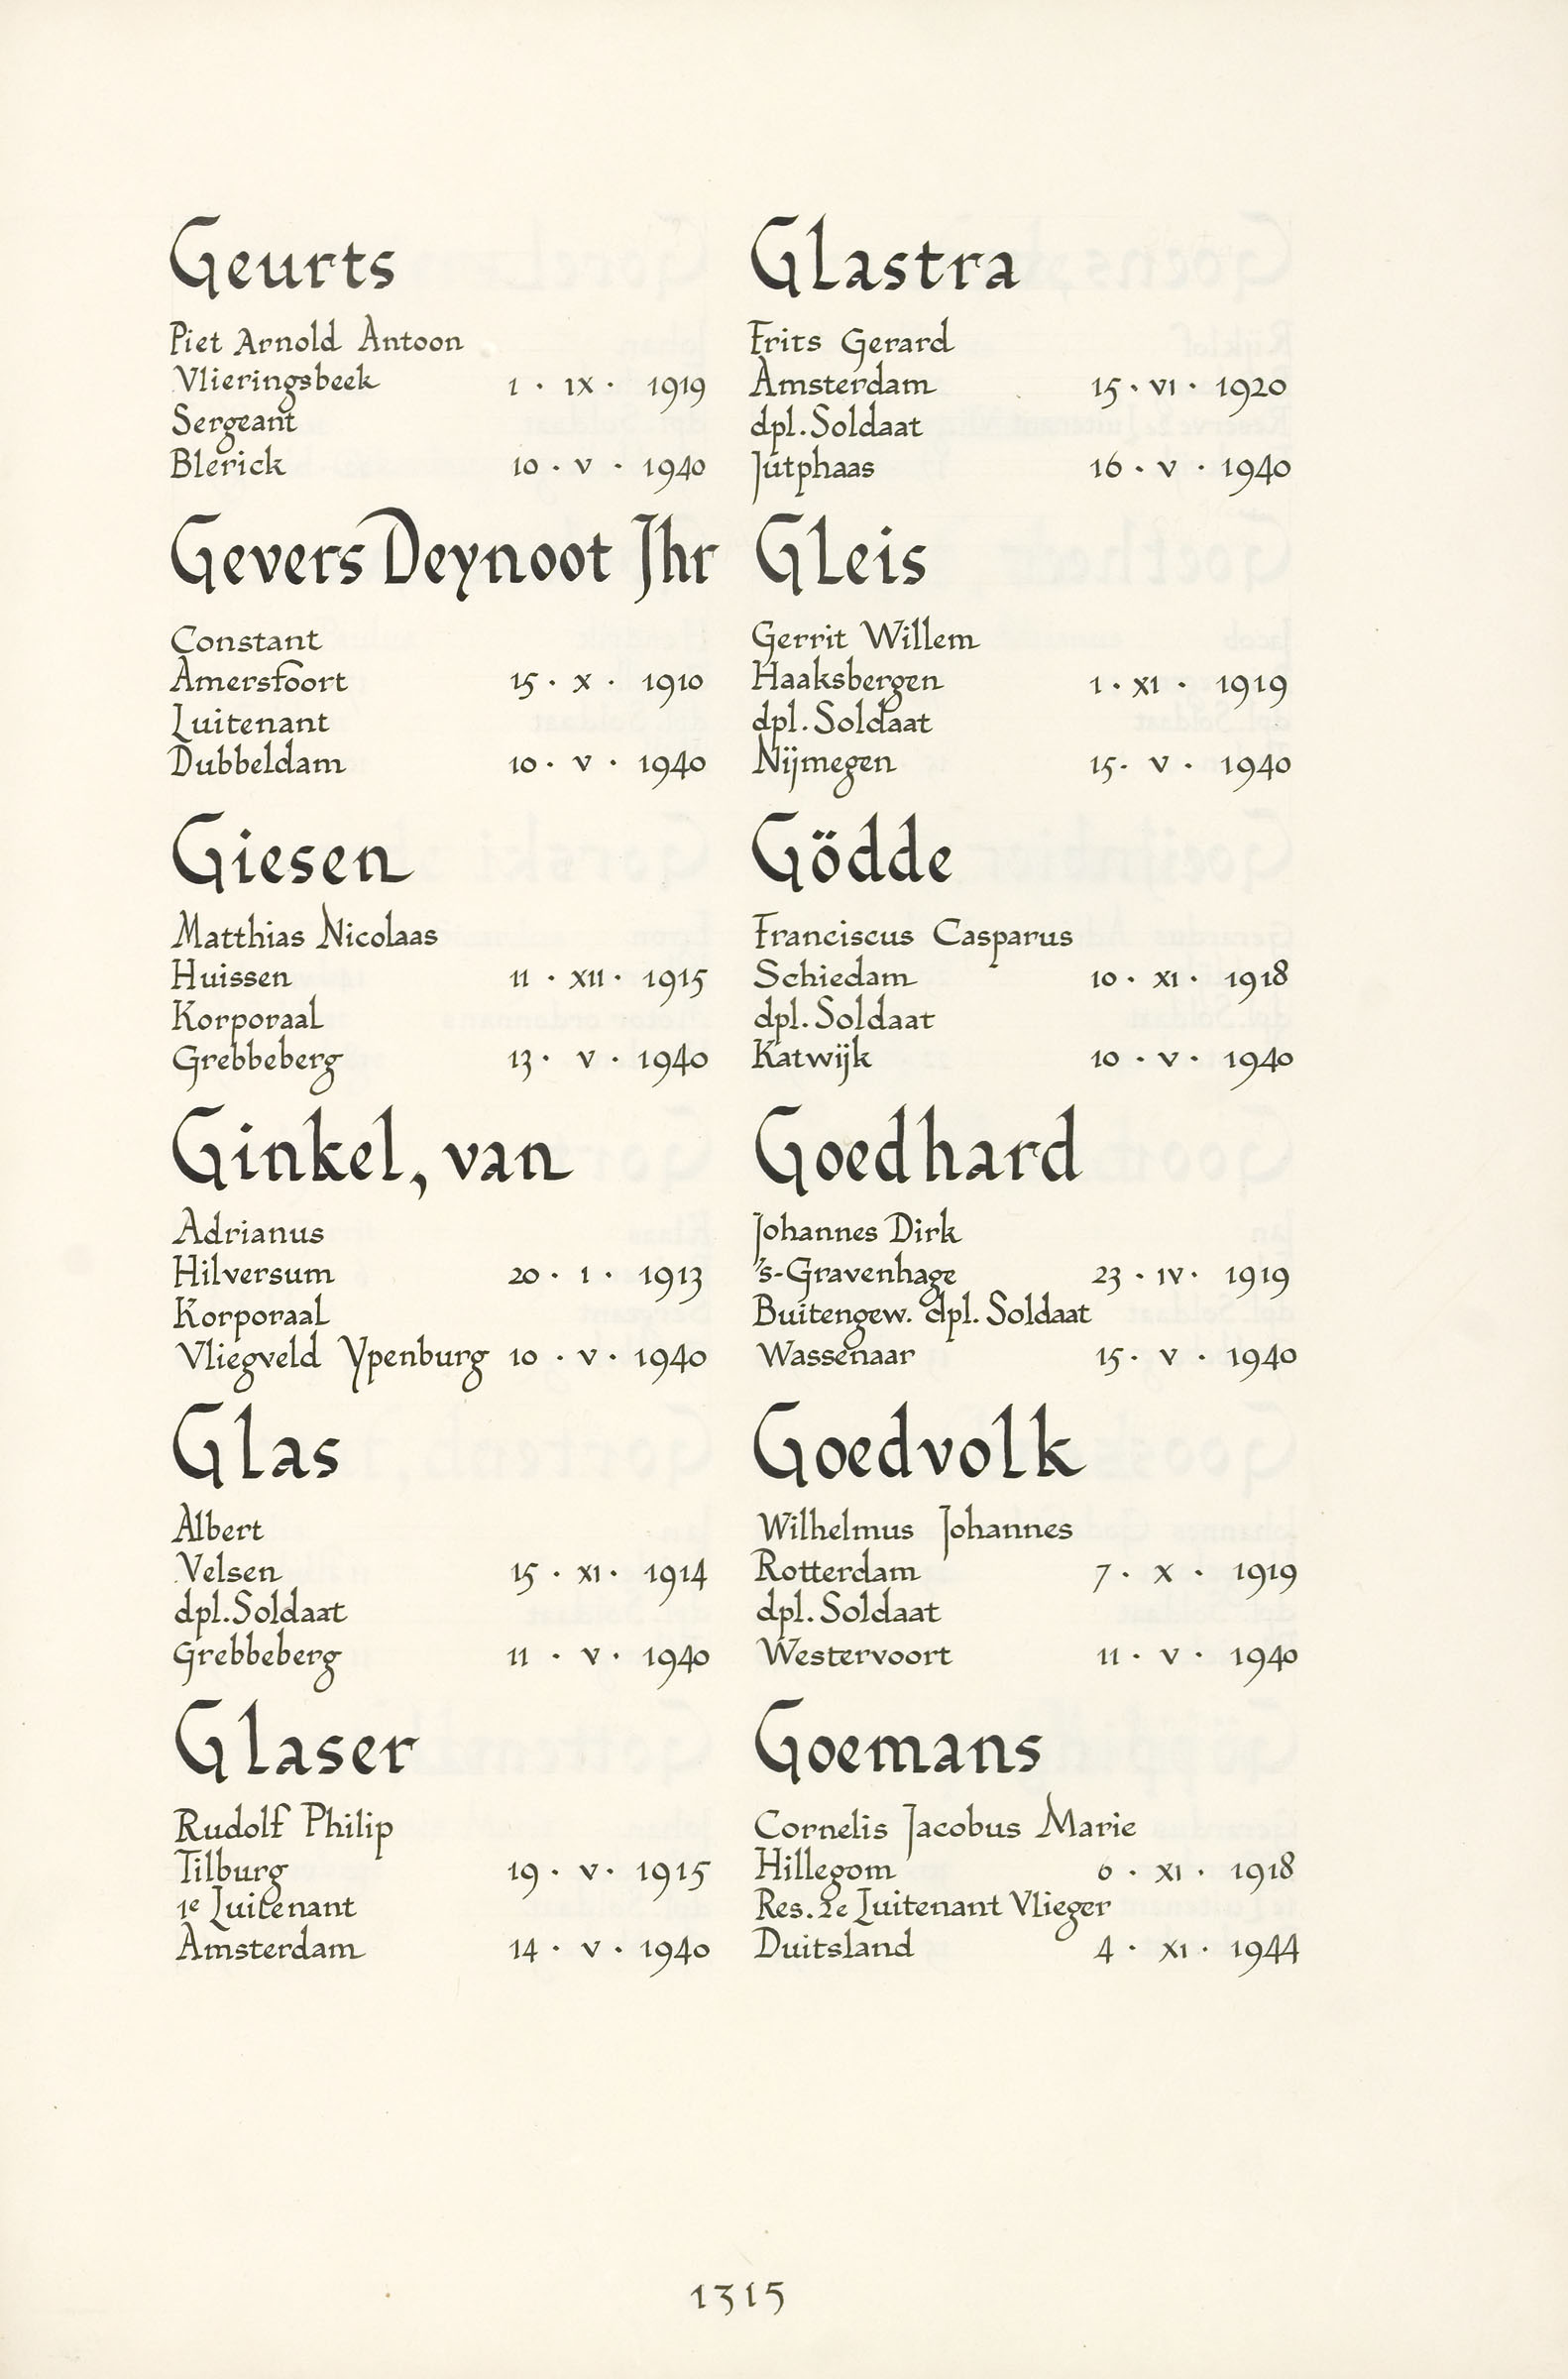 Geurts
Piet Arnold Antoon
Vlieringsbeek 1 · IX · 1919
Sergeant
Blerick 10 · V · 1940
Gevers Deynoot Jhr
Constant
Amersfoort 15 · X · 1910
Luitenant
Dubbeldam 10 · V · 1940
Giesen
Matthias Nicolaas
Huissen 11 · XII · 1915
Korporaal
Grebbeberg 13 · V · 1940
Ginkel, van
Adrianus
Hilversum 20 · I · 1913
Korporaal
Vliegveld Ypenburg 10 · V · 1940
Glas
Albert
Velsen 15 · XI · 1914
dpl. Soldaat
Grebbeberg 11 · V · 1940
Glaser
Rudolf Philip
Tilburg 19 · V · 1915
1e Luitenant
Amsterdam 14 · V · 1940
Glastra
Frits Gerard
Amsterdam 15 · VI · 1920
dpl. Soldaat
Jutphaas 16 · V · 1940
Gleis
Gerrit Willem
Haaksbergen 1 · XI · 1919
dpl. Soldaat
Nijmegen 15 · V · 1940
Gödde
Franciscus Casparus
Schiedam 10 · XI · 1918
dpl. Soldaat
Katwijk 10 · V · 1940
Goedhard
Johannes Dirk
's-Gravenhage 23 · IV · 1919
Buitengew. dpl. Soldaat
Wassenaar 15 · V · 1940
Goedvolk
Wilhelmus Johannes
Rotterdam 7 · X · 1919
dpl. Soldaat
Westervoort 11 · V · 1940
Goemans
Cornelis Jacobus Marie
Hillegom 6 · XI · 1918
Res. 2e Luitenant Vlieger
Duitsland 4 · XI · 1944
1315